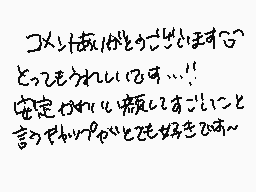 コメントありがとうございます^^
とってもうれしいです…!!
安定かわいい顔してすごいこと
言うギャップがとても好きです~